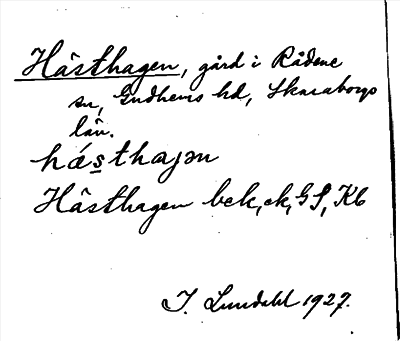 Hästhagen, gård i Rådene
sn, Gudhems hd, Skaraborgs
län.
hásthaגən
Hästhagen bek, ek, GS, Kb
I. Lundahl 1927.